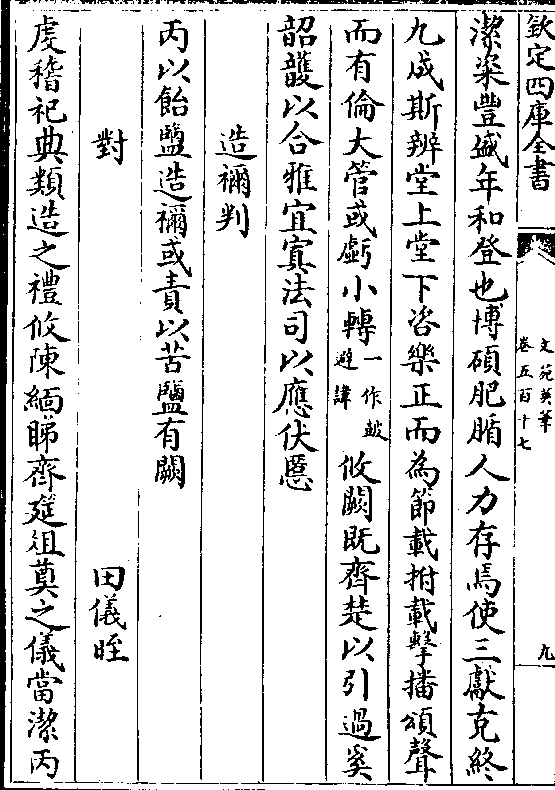 欽定四庫全書
文苑英華
卷五百十七
九
潔粢豐盛年和登也博碩肥腯人力存焉使三獻克終
九成斯辨堂上堂下咨樂正而為節載拊載擊播頌聲
而有倫大管或虧小轉一作鼓避諱攸闕既齊楚以引過奚
韶頀以合雅宜寘法司以應伏愿
造禰判
丙以飴鹽造禰或責以苦鹽有闕
對
田儀晊
虔稽祀典類造之禮攸陳緬睇齊筵俎奠之儀當潔丙